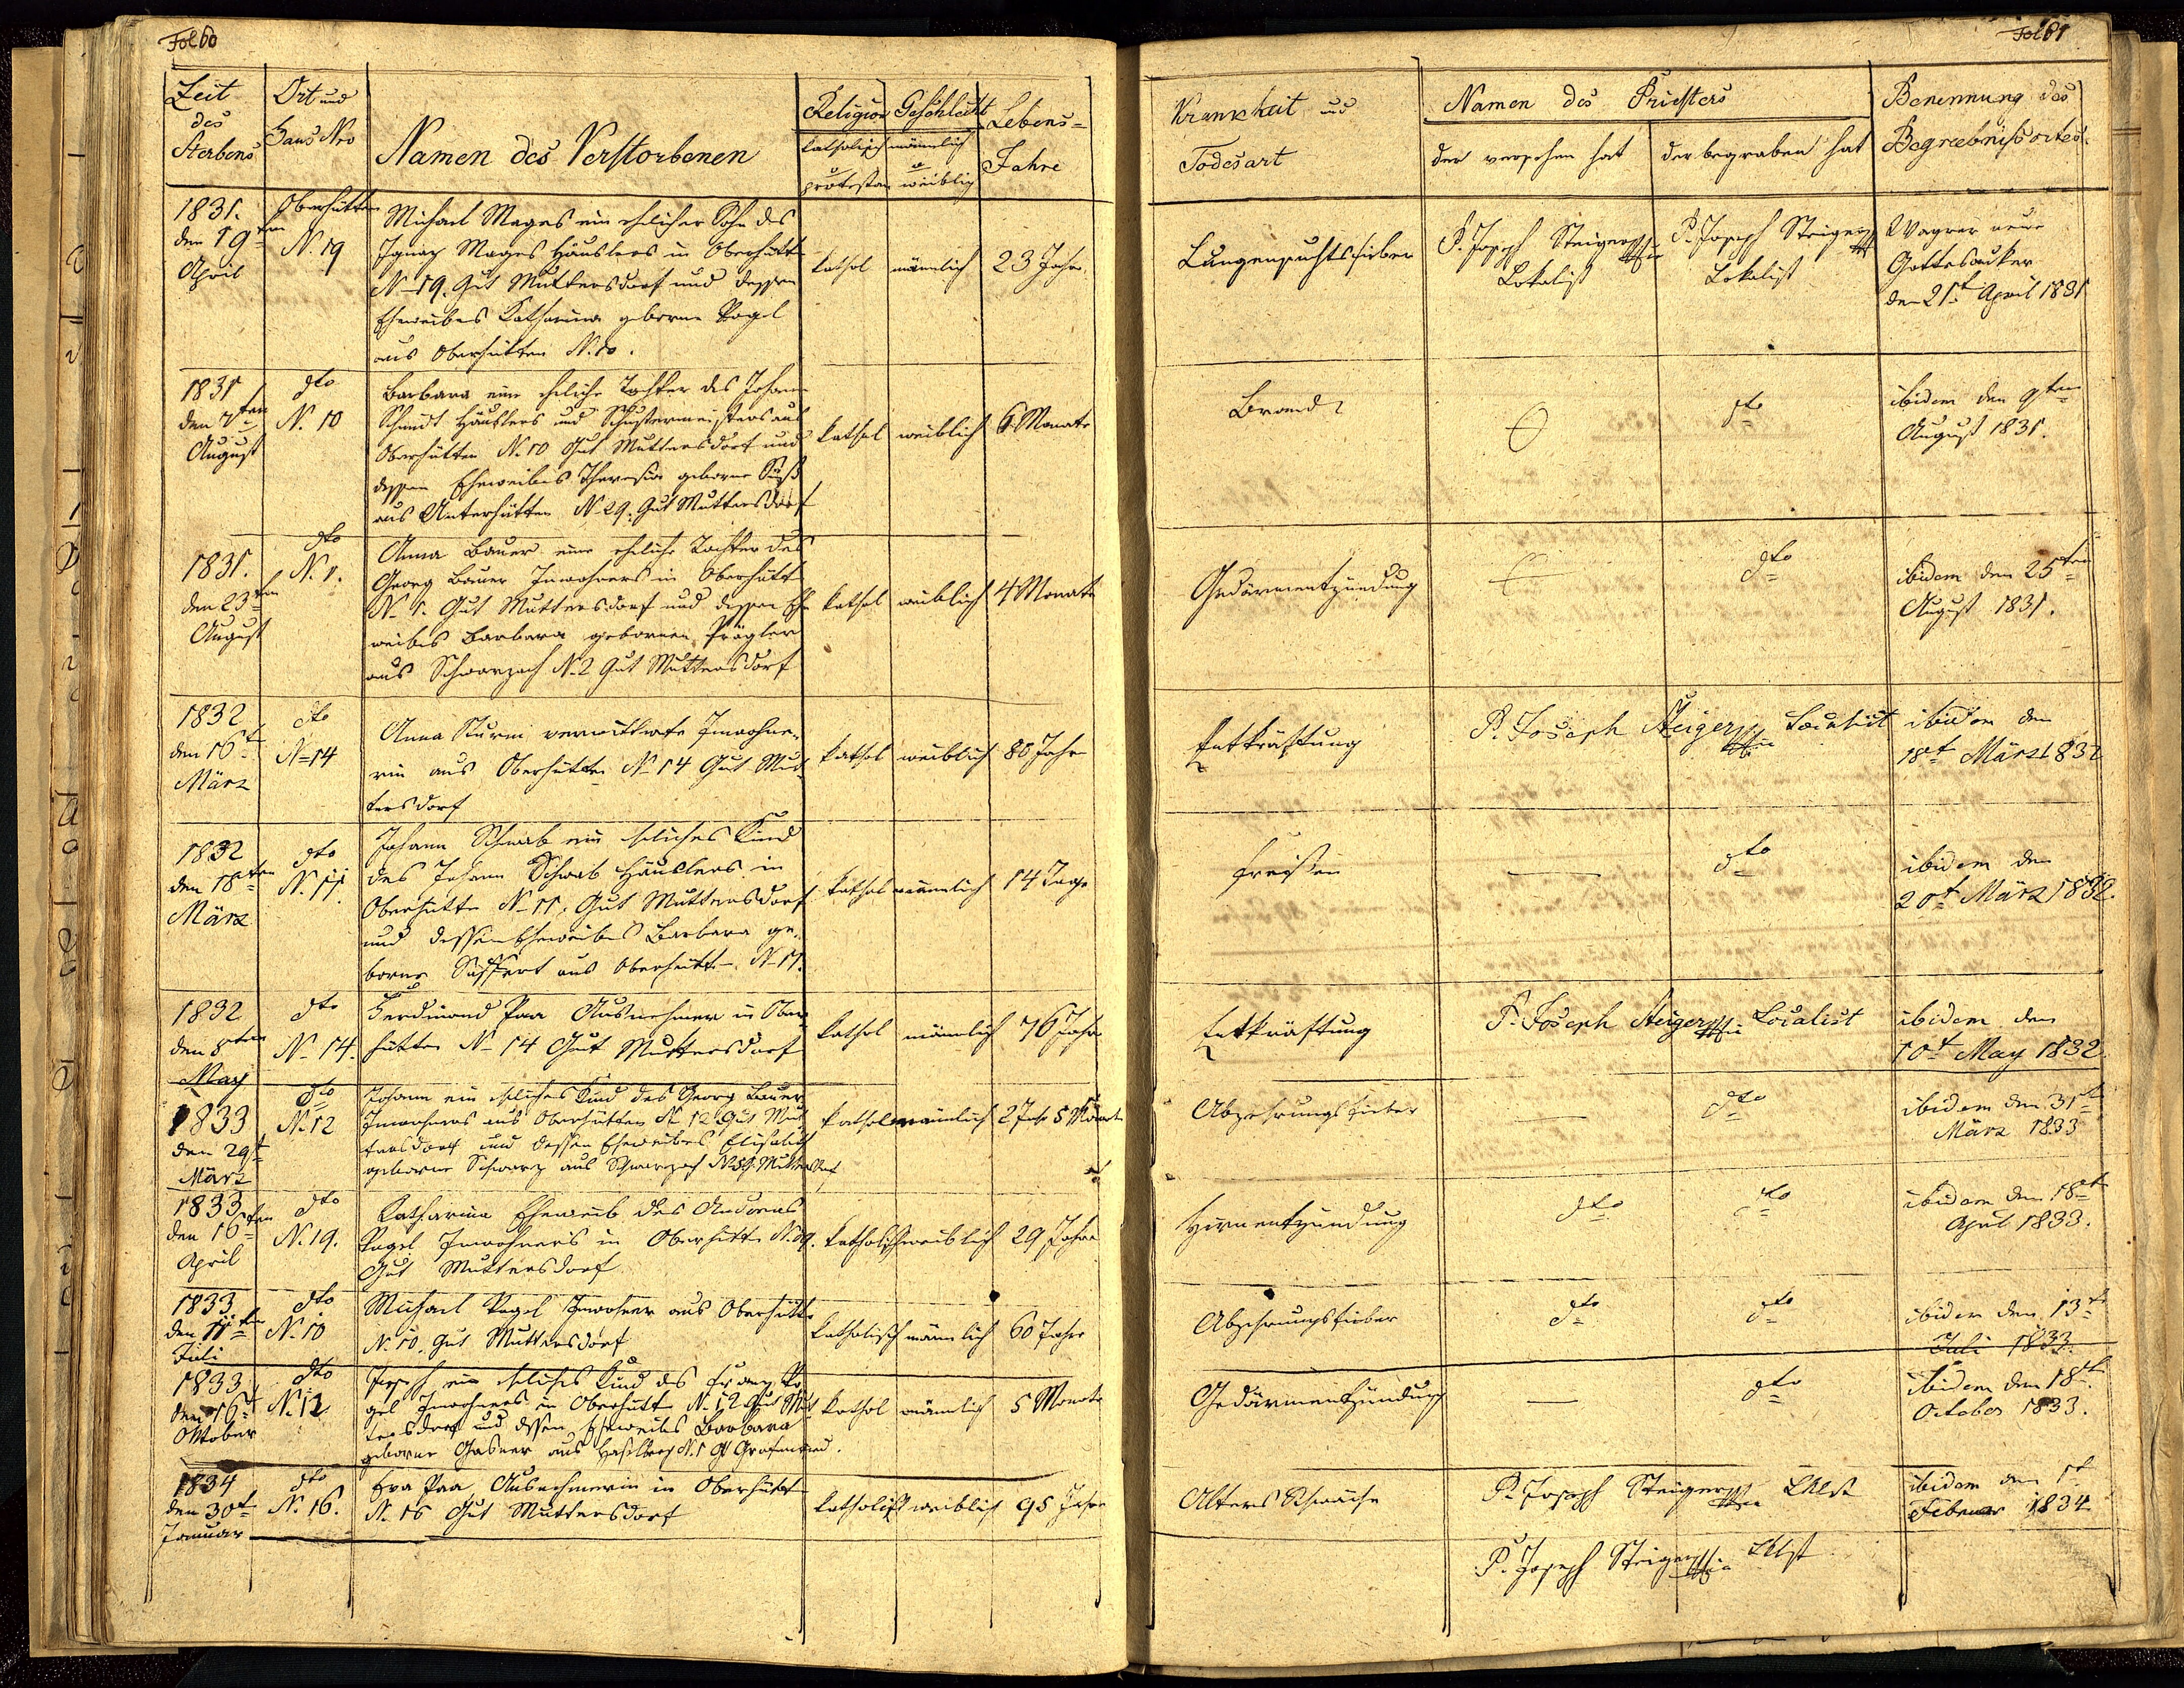 Fol 60
Zeit des Sterbens
Ort und Haus Nro
Namen des Verstorbenen
Religion
katholisch o protestan
Geschlecht
männlich o weiblig
Lebens-Jahre
1831.
den 19ten
April
Oberhütten
N. 19
Michael Mages ein ehlicher Sohn des
Ignaz Mages Häuslers in Oberhütt
N 19. Gut Muttersdorf und dessen
Eheweibes Katharina geborne Pagel
aus Oberhütten N. 10.
kathol männlich 23 Jahr
1831
den 7ten
August
dto
N. 10
Barbara eine ehliche Tochter des Johann
Schmidt Häuslers und Schustermeisters aus
Oberhütten N. 10 Gut Muttersdorf und
dessen Eheweibes Theresia geborne Süß
aus Unterhütten N 29. Gut Muttersdorf
kathol weiblich 6 Monate
1831.
den 23ten
August
dto
N. 1.
Anna Bauer eine ehliche Tochter des
Georg Bauer Inwohners in Oberhütt
N. 1. Gut Muttersdorf und dessen Ehe
weibes Barbara gebornen
aus Schwarzach N. 2 Gut Muttersdorf
kathol weiblich 4 Monate
1832
den 16t
März
dto
N 14
Anna Sturm verwittwete Inwohne-
rin aus Oberhütten N 14 Gut Mut
tersdorf
kathol weiblich 80 Jahr
1832
den 18ten
März
dto
N. 11.
Johann Schwab ein ehliches Kind
des Johann Schwab Häuslers in
Oberhütte N 11, Gut Muttersdorf
und dessen Eheweibes Barbara ge-
borne aus Oberhütt N 11.
kathol männlich 14 Tage
1832
den 8ten
May
dto
N 14.
Ferdinand Paa Ausnehmer in Ober
hütten N 14 Gut Muttersdorf
kathol männlich 76 Jahr
1833
den 29t
März
dto
N. 12
Johann ein ehliches Kind des Georg Bauer
Inwohners aus Oberhütten N 12 Gut Mut
tersdorf und dessen Eheweibes Elisabeth
geborne Schwarz aus Schwarzach Muttersdorf
kathol männlich 2 Jahr 5 Monate
1833
den 16ten
April
dto
N. 19.
Katharina Eheweib des Andreas
Pagel Inwohners in Oberhütt N. 19.
Gut Muttersdorf
katholisch weiblich 29 Jahre
1833
den 11ten
Juli
dto
N. 10
Michael Pagel Inwohner aus Oberhütt
N. 10. Gut Muttersdorf
katholisch männlich 60 Jahre
1833
den 16t
Oktober
dto
N. 12
Joseph ein ehliches Kind des Franz Pa
gel Inwohners in Oberhütt N. 12 Gut Mut
tersdorf und dessen Eheweibes Barbara
geborne Gasner aus Haselberg N. 1 Gt Grafenried.
kathol männlich 5 Monate
1834
den 30t
Januar
dto
N. 16.
Eva Paa, Ausnehmerin in Oberhütt
N. 16 Gut Muttersdorf
katholisch weiblich 95 Jahre
Fol 61
Krankheit und Todesart
Namen des Priesters
der versehen hat
der begraben hat
Benennung des Begræbnißortes.
Lungensuchtsfieber
P. Joseph Steiger
Lokalist
P. Joseph Steiger
Lokalist
Wagner neue
Gottesacker
den 21t April 1831
Brand
dto
ibidem den 9ten
August 1831.
Gedärmentzündung
dto
ibidem den 25ten
August 1831.
Entkräftung
P. Joseph Steiger Localist
ibidem den
18t März 1832
Freisen
—
dto
ibidem den
20t März 1832.
Entkräftung
P. Joseph Steiger Localist
ibidem den
10t May 1832
Abzehrungsfieber
—
dto
ibidem den 31t
März 1833
Hirnentzündung
dto
dto
ibidem den 18t
April 1833.
Abzehrungsfieber
dto
dto
ibidem den 13t
Juli 1833.
Gedärmentzündung
—
dto
ibidem den 18t
October 1833.
Alters Schwäche
P. Joseph Steiger Lklst
ibidem den 1t
Februar 1834
P. Joseph Steiger Lklst